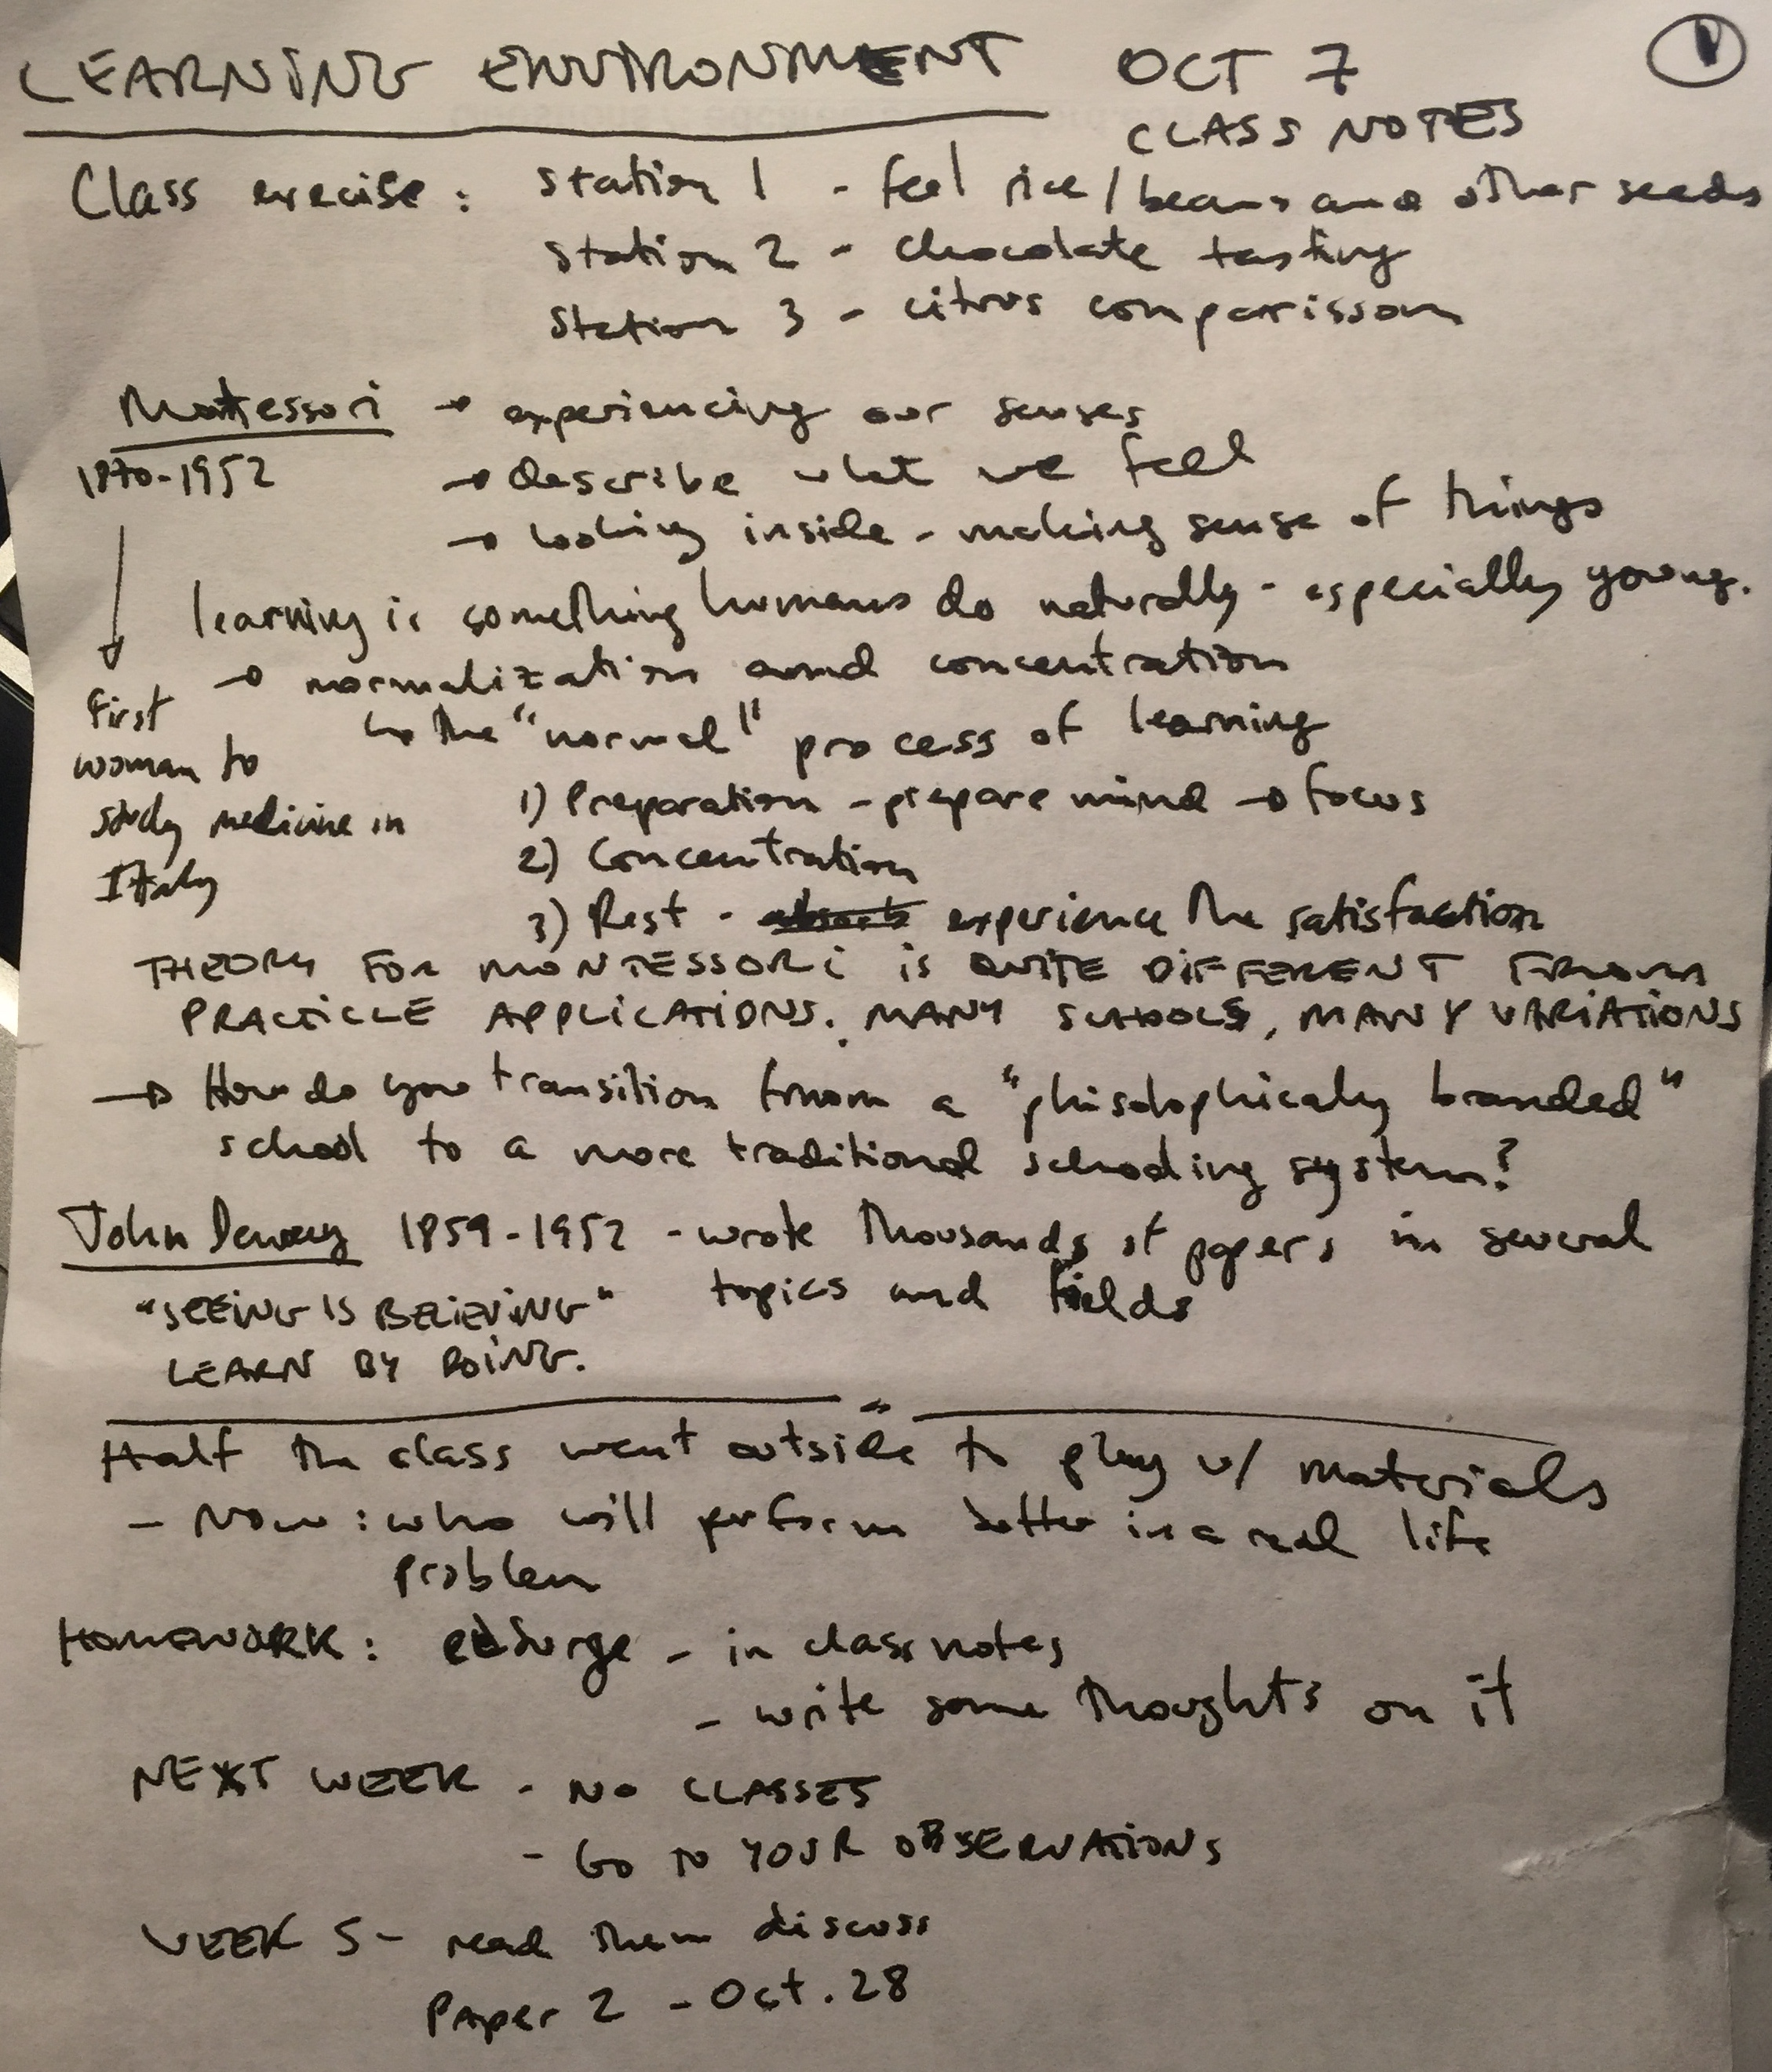 LEARNING ENVIRONMENT OCT 7 1
CLASS NOTES
Class execise : Station 1 - feel rice / beans and other seeds
Station 2 - chocolate tasting
Station 3 - citrus comparisson
Montessori → experiencing our senses
1870-1952 → describe what we feel
→ looking inside - making sense of things
learning is something humans do naturally - especially young.
→ normalization and concentration
first
woman to
study medicine in
Italy
↳ the "normal" process of learning
1) Preparation - prepare mind → focus
2) Concentration
3) Rest - experience the satisfaction
THEORY FOR MONTESSORI IS QUITE DIFFERENT FROM
PRACTICLE APPLICATIONS. MANY SCHOOLS, MANY VARIATIONS
→ How do you transition from a "phisolophically branded"
school to a more traditional schooling system?
John Dewey 1859-1952 - wrote thousands of papers in several
topics and fields
"SEEING IS BELIEVING"
LEARN BY DOING.
Half the class went outside to play w/ materials
- Now : who will perform better in a real life
problem
HOMEWORK : edsurge - in class notes
- write some thoughts on it
NEXT WEEK - NO CLASSES
- GO TO YOUR OBSERVATIONS
WEEK 5 - read them discuss
Paper 2 - Oct. 28